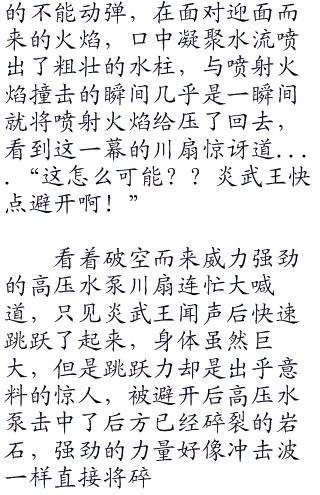 的不能动弹，在面对迎面而
来的火焰，口中凝聚水流喷
出了粗壮的水柱，与喷射火
焰撞击的瞬间几乎是一瞬间
就将喷射火焰给压了回去，
看到这一幕的川扇惊讶道...
.“这怎么可能？？炎武王快
点避开啊！”
看着破空而来威力强劲
的高压水泵川扇连忙大喊
道，只见炎武王闻声后快速
跳跃了起来，身体虽然巨
大，但是跳跃力却是出乎意
料的惊人，被避开后高压水
泵击中了后方已经碎裂的岩
石，强劲的力量好像冲击波
一样直接将碎